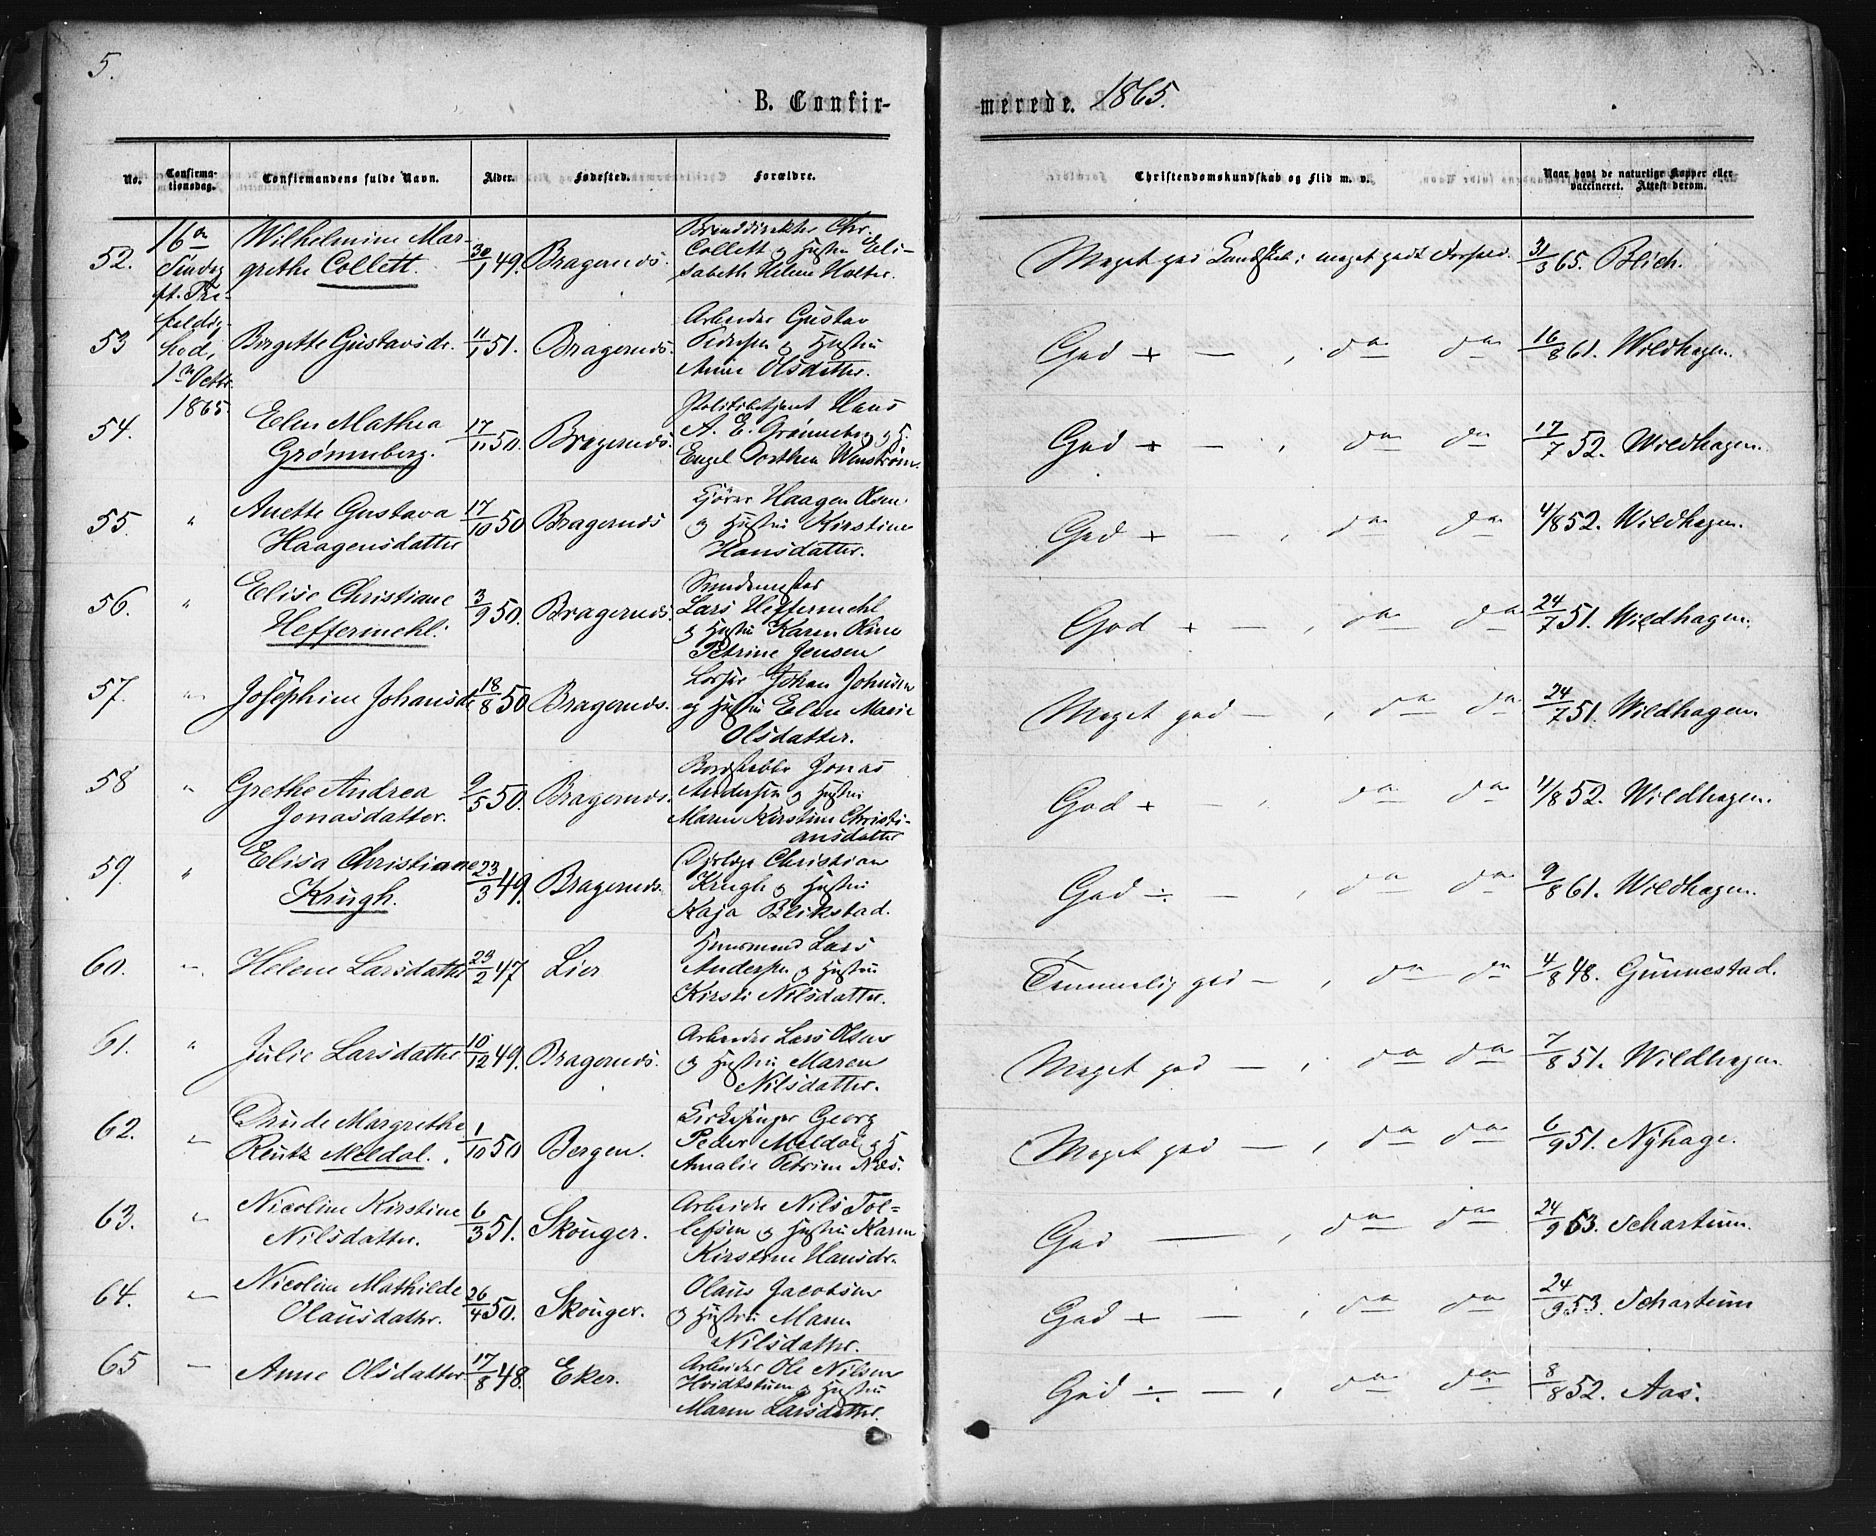 5.
B. Confir-
merede. 1865.
No.
Confirma-
tionsdag.
Confirmandens fulde Navn.
Alder.
Fødested.
Forældre.
Christendomskundskab og Flid m. v.
Naar havt de naturlige Kopper eller
vaccineret. Attest derom.
16de
Søndag
ft. Tre-
foldig-
hed,
1ste Octbr
1865.
52. Wilhelmine Mar-
grethe Collett. 30/1 49. Bragernæs.
Branddirektør Chr.
Collett og Hustru Eli-
sabeth Helene Holter.
Meget god Kundskab; meget godt Forhold. 31/3 65. Blich.
53 Birgitte Gustavsdr. 11/1 51. Bragernæs.
Arbeider Gustav
Pedersen og Hustru
Anne Olsdatter.
God + — , do do 16/8 61. Wildhagen.
54. Elen Mathea
Grønneberg. 17/11 50. Bragernæs.
Politibetjent Hans
A. E. Grønneberg og H.
Engel Dorthea Wenstrøm.
God + — , do do 17/7 52. Wildhagen.
55. " Anette Gustava
Haagensdatter 17/10 50 Bragernæs
Kjører Haagen Olsen
og Hustru Kirstine
Hansdatter.
God + — , do do 4/8 52. Wildhagen.
56. " Elise Christiane
Heffermehl. 3/9 50. Bragernæs.
Lars Heffermehl
og Hustru Karen Oline
Petrine Jensen
God + — , do do 24/7 51. Wildhagen.
57. " Josephine Johansdr 18/8 50. Bragernæs.
Johan Johnsen
og Hustru Elen Marie
Olsdatter.
Meget god — , do do 24/7 51. Wildhagen.
58 " Grethe Andrea
Jonasdatter. 9/5 50. Bragernæs.
Jonas
Andersen og Hustru
Maren Kirstine Christi-
ansdatter
God + — , do do 4/8 52. Wildhagen.
59. " Elisa Christiane
Krugh. 23/3 49. Bragernæs.
Christian
Krugh og Hustru
Kaja Blikstad.
God ÷ — , do do 9/8 61. Wildhagen.
60. " Helene Larsdatter 23/2 47 Lier
Huusmand Lars
Andersen og Hustru
Kirsti Nilsdatter.
Temmelig god — , do do 4/8 48. Gunnestad.
61. " Julie Larsdatter 10/12 49. Bragernæs.
Arbeider Lars Olsen
og Hustru Maren
Nilsdatter.
Meget god — , do do 7/8 51. Wildhagen
62. " Drude Margrethe
Reutz Meldal. 1/10 50 Bergen.
Kirkesanger Georg
Peder Meldal og H.
Amalie Petrine
Meget god — , do do 6/9 51. Nyhage.
63. " Nicoline Kirstine
Nilsdatter. 6/3 51. Skouger.
Arbeider Nils Tol-
lefsen og Hustru Karen
Kirstine Hansdr.
God — , do do 24/9 53. Schartum.
64. " Nicoline Mathilde
Olausdatter. 26/4 50. Skouger.
Olaus Jacobsen
og Hustru Maren
Nilsdatter.
God + — , do do 24/9 53. Schartum
65 — Anne Olsdatter. 17/8 48. Eker.
Arbeider Ole Nilsen
Hvidtstuen og Hustru
Maren Larsdatter.
God ÷ — , do do 8/8 52. Aas.